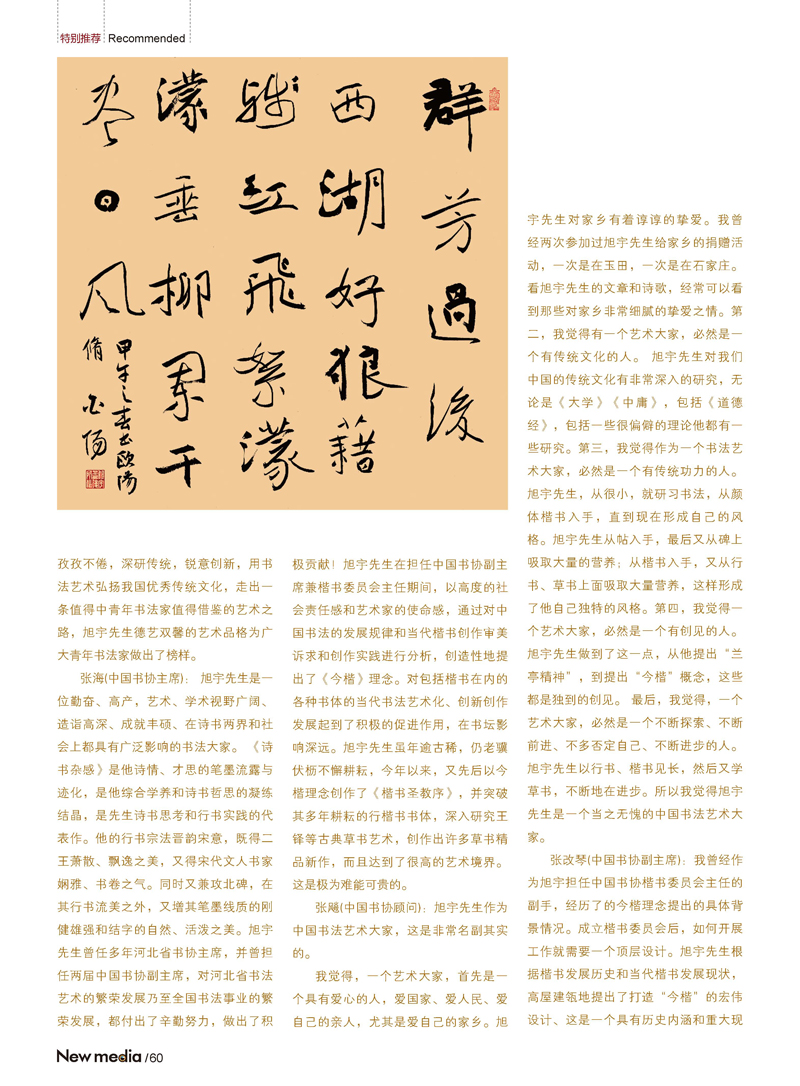 特别推荐 Recommended
群芳過後
西湖好狼藉
残红飛絮濛
濛垂柳阑干
尽日风
甲午之春书欧阳
脩
孜孜不倦，深研传统，锐意创新，用书
法艺术弘扬我国优秀传统文化，走出一
条值得中青年书法家值得借鉴的艺术之
路，旭宇先生德艺双馨的艺术品格为广
大青年书法家做出了榜样。
张海(中国书协主席)： 旭宇先生是一
位勤奋、高产，艺术、学术视野广阔、
造诣高深、成就丰硕、在诗书两界和社
会上都具有广泛影响的书法大家。《诗
书杂感》是他诗情、才思的笔墨流露与
迹化，是他综合学养和诗书哲思的凝练
结晶，是先生诗书思考和行书实践的代
表作。他的行书宗法晋韵宋意，既得二
王萧散、飘逸之美，又得宋代文人书家
娴雅、书卷之气。同时又兼攻北碑，在
其行书流美之外，又增其笔墨线质的刚
健雄强和结字的自然、活泼之美。旭宇
先生曾任多年河北省书协主席，并曾担
任两届中国书协副主席，对河北省书法
艺术的繁荣发展乃至全国书法事业的繁
荣发展，都付出了辛勤努力，做出了积
极贡献！旭宇先生在担任中国书协副主
席兼楷书委员会主任期间，以高度的社
会责任感和艺术家的使命感，通过对中
国书法的发展规律和当代楷书创作审美
诉求和创作实践进行分析，创造性地提
出了《今楷》理念。对包括楷书在内的
各种书体的当代书法艺术化、创新创作
发展起到了积极的促进作用，在书坛影
响深远。旭宇先生虽年逾古稀，仍老骥
伏枥不懈耕耘，今年以来，又先后以今
楷理念创作了《楷书圣教序》，并突破
其多年耕耘的行楷书书体，深入研究王
铎等古典草书艺术，创作出许多草书精
品新作，而且达到了很高的艺术境界。
这是极为难能可贵的。
张飚(中国书协顾问)：旭宇先生作为
中国书法艺术大家，这是非常名副其实
的。
我觉得，一个艺术大家，首先是一
个具有爱心的人，爱国家、爱人民、爱
自己的亲人，尤其是爱自己的家乡。旭
宇先生对家乡有着谆谆的挚爱。我曾
经两次参加过旭宇先生给家乡的捐赠活
动，一次是在玉田，一次是在石家庄。
看旭宇先生的文章和诗歌，经常可以看
到那些对家乡非常细腻的挚爱之情。第
二，我觉得有一个艺术大家，必然是一
个有传统文化的人。 旭宇先生对我们
中国的传统文化有非常深入的研究，无
论是《大学》《中庸》，包括《道德
经》，包括一些很偏僻的理论他都有一
些研究。第三，我觉得作为一个书法艺
术大家，必然是一个有传统功力的人。
旭宇先生，从很小，就研习书法，从颜
体楷书入手，直到现在形成自己的风
格。旭宇先生从帖入手，最后又从碑上
吸取大量的营养；从楷书入手，又从行
书、草书上面吸取大量营养，这样形成
了他自己独特的风格。第四，我觉得一
个艺术大家，必然是一个有创见的人。
旭宇先生做到了这一点，从他提出“兰
亭精神”，到提出“今楷”概念，这些
都是独到的创见。 最后，我觉得，一个
艺术大家，必然是一个不断探索、不断
前进、不多否定自己、不断进步的人。
旭宇先生以行书、楷书见长，然后又学
草书，不断地在进步。所以我觉得旭宇
先生是一个当之无愧的中国书法艺术大
家。
张改琴(中国书协副主席)：我曾经作
为旭宇担任中国书协楷书委员会主任的
副手，经历了的今楷理念提出的具体背
景情况。成立楷书委员会后，如何开展
工作就需要一个顶层设计。旭宇先生根
据楷书发展历史和当代楷书发展现状，
高屋建瓴地提出了打造“今楷”的宏伟
设计、这是一个具有历史内涵和重大现
New media /60